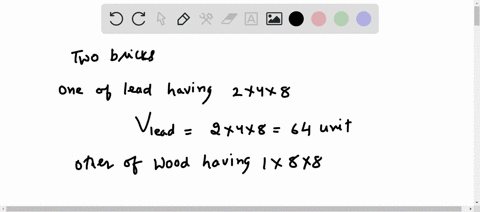 Two bricks
one of lead having 2x4x8
Vlead = 2x4x8 = 64 unit
other of wood having 1x8x8